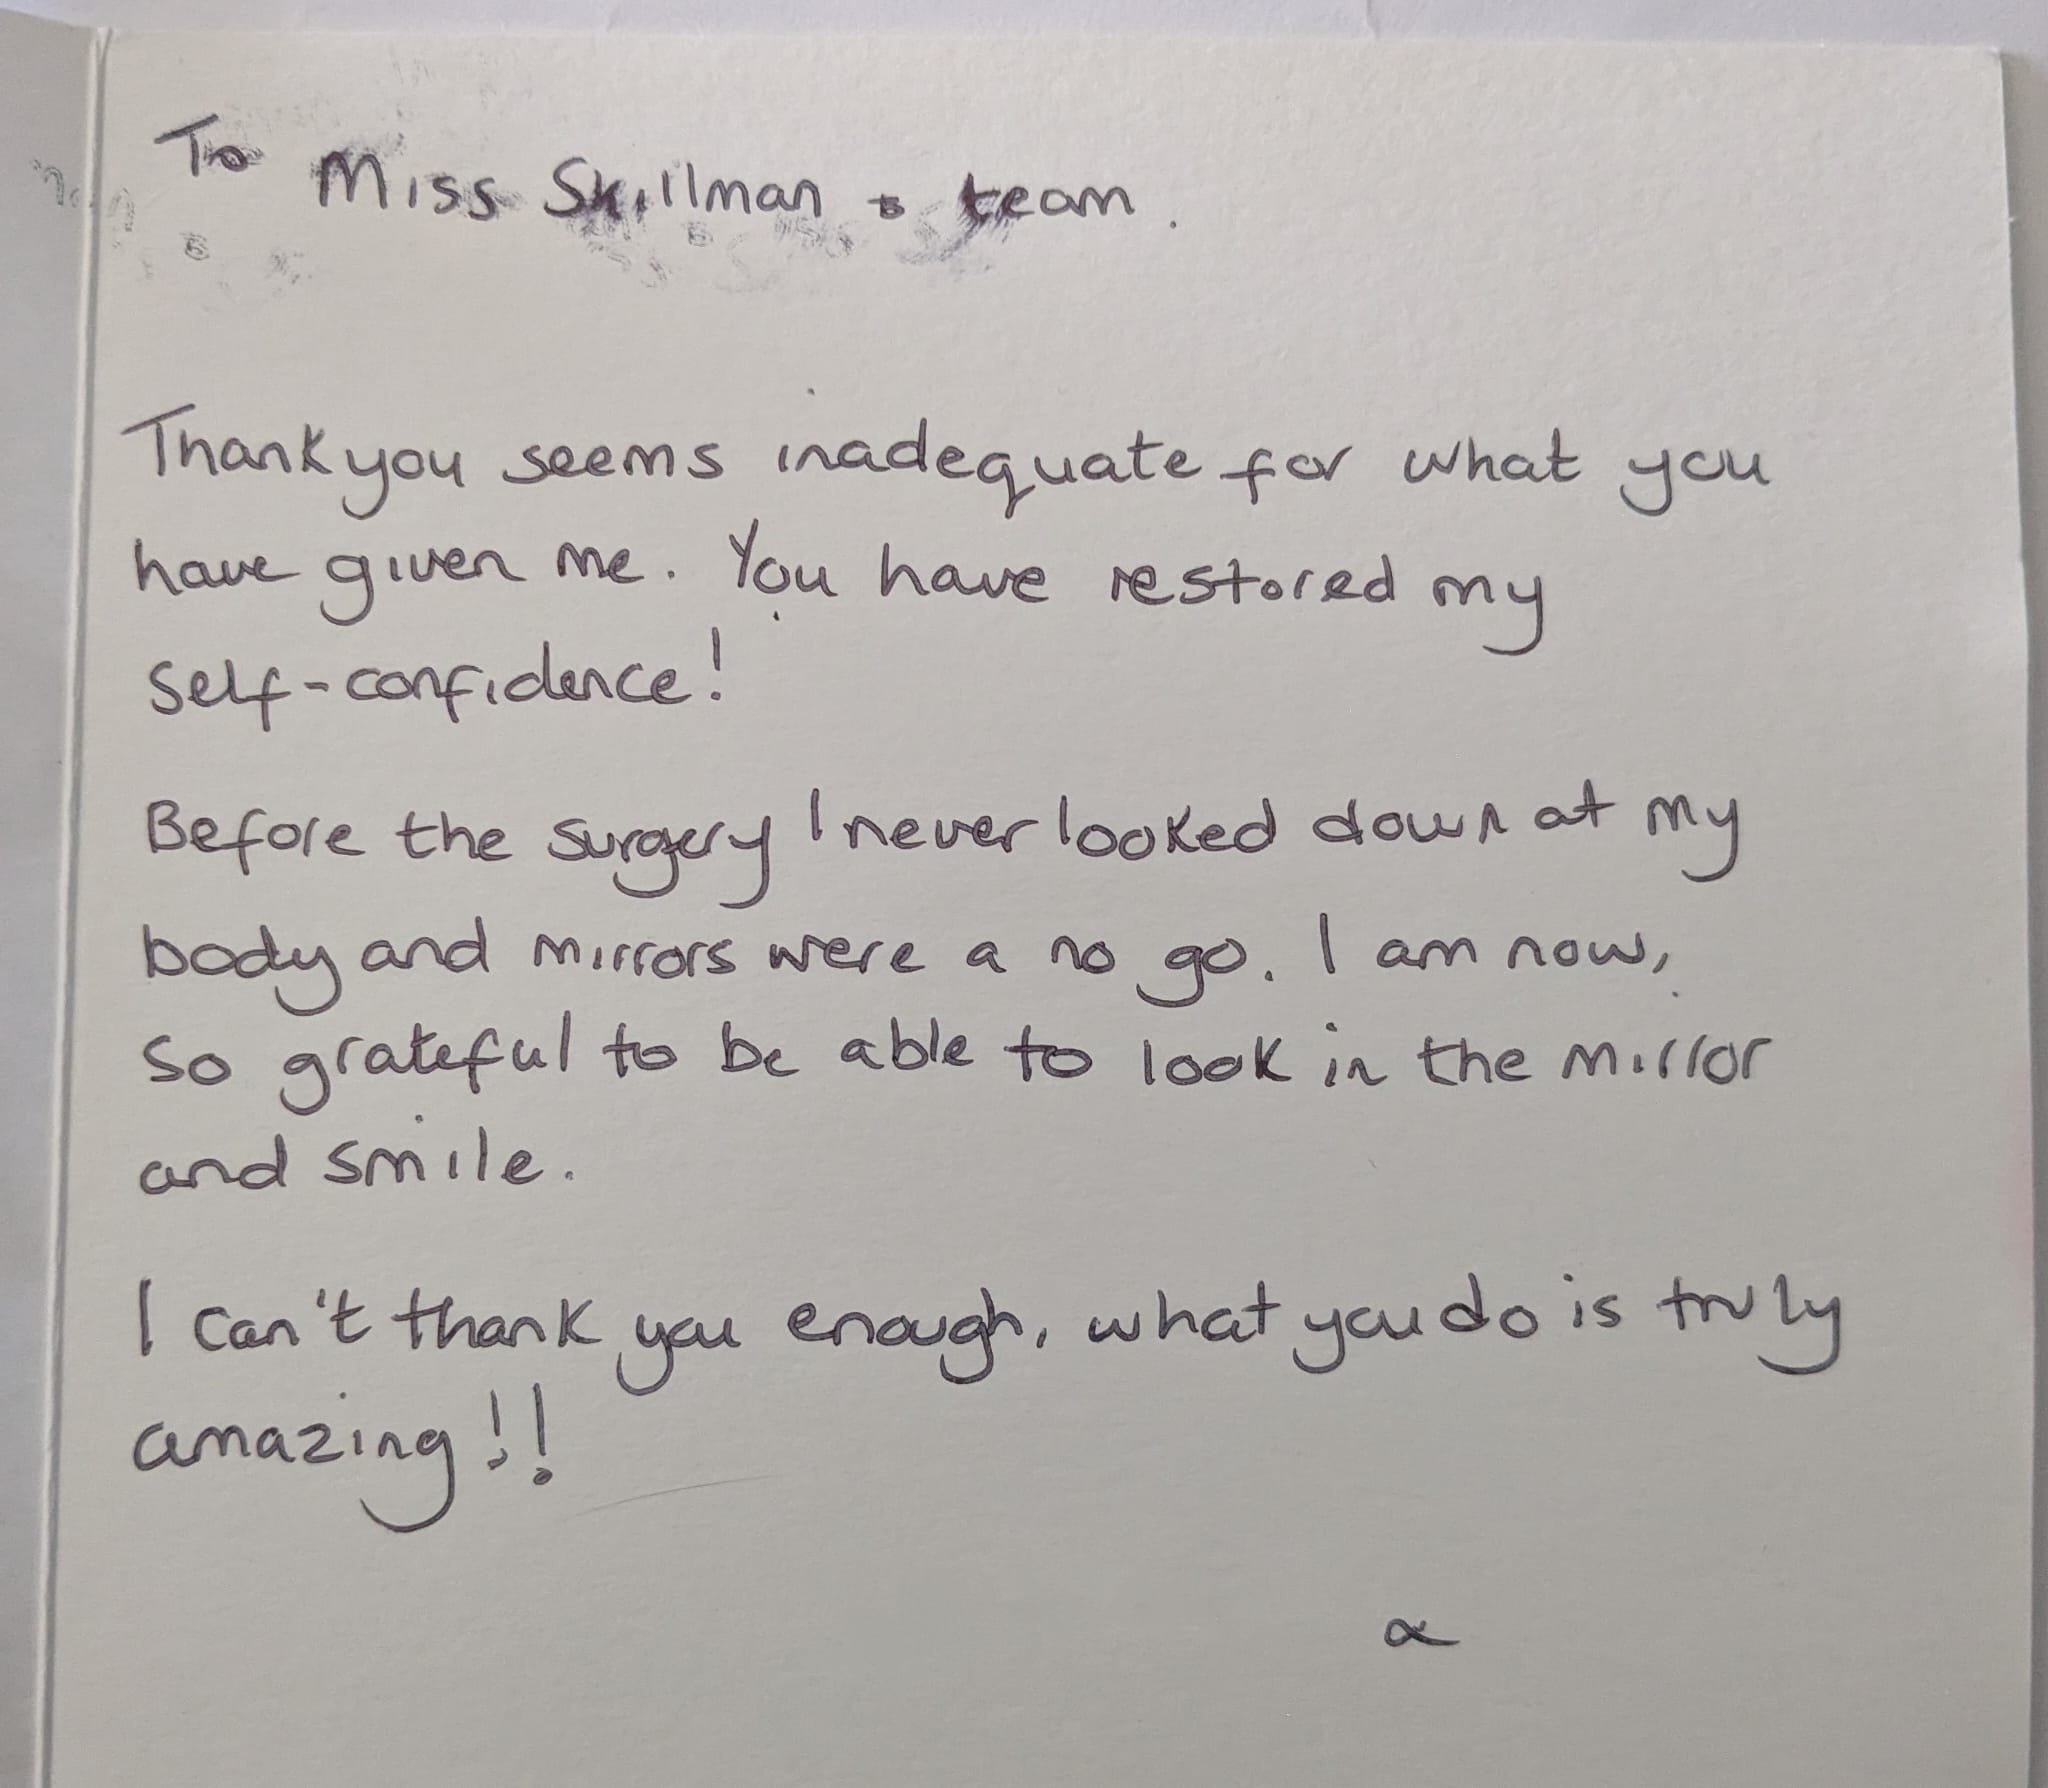 To Miss Skillman & team.
Thankyou seems inadequate for what you
have given me. You have restored my
self-confidence!
Before the surgery I never looked down at my
body and mirrors were a no go. I am now,
so grateful to be able to look in the mirror
and smile.
I can't thank you enough, what you do is truly
amazing!!